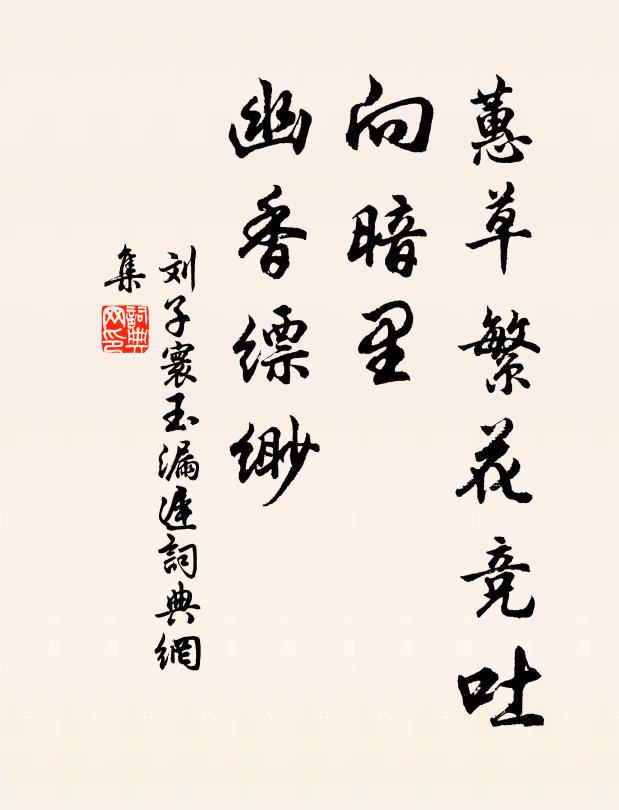 蕙草繁花竞吐
向暗里
幽香缥缈
刘子寰玉漏遲詞典網
集
詞典
网印